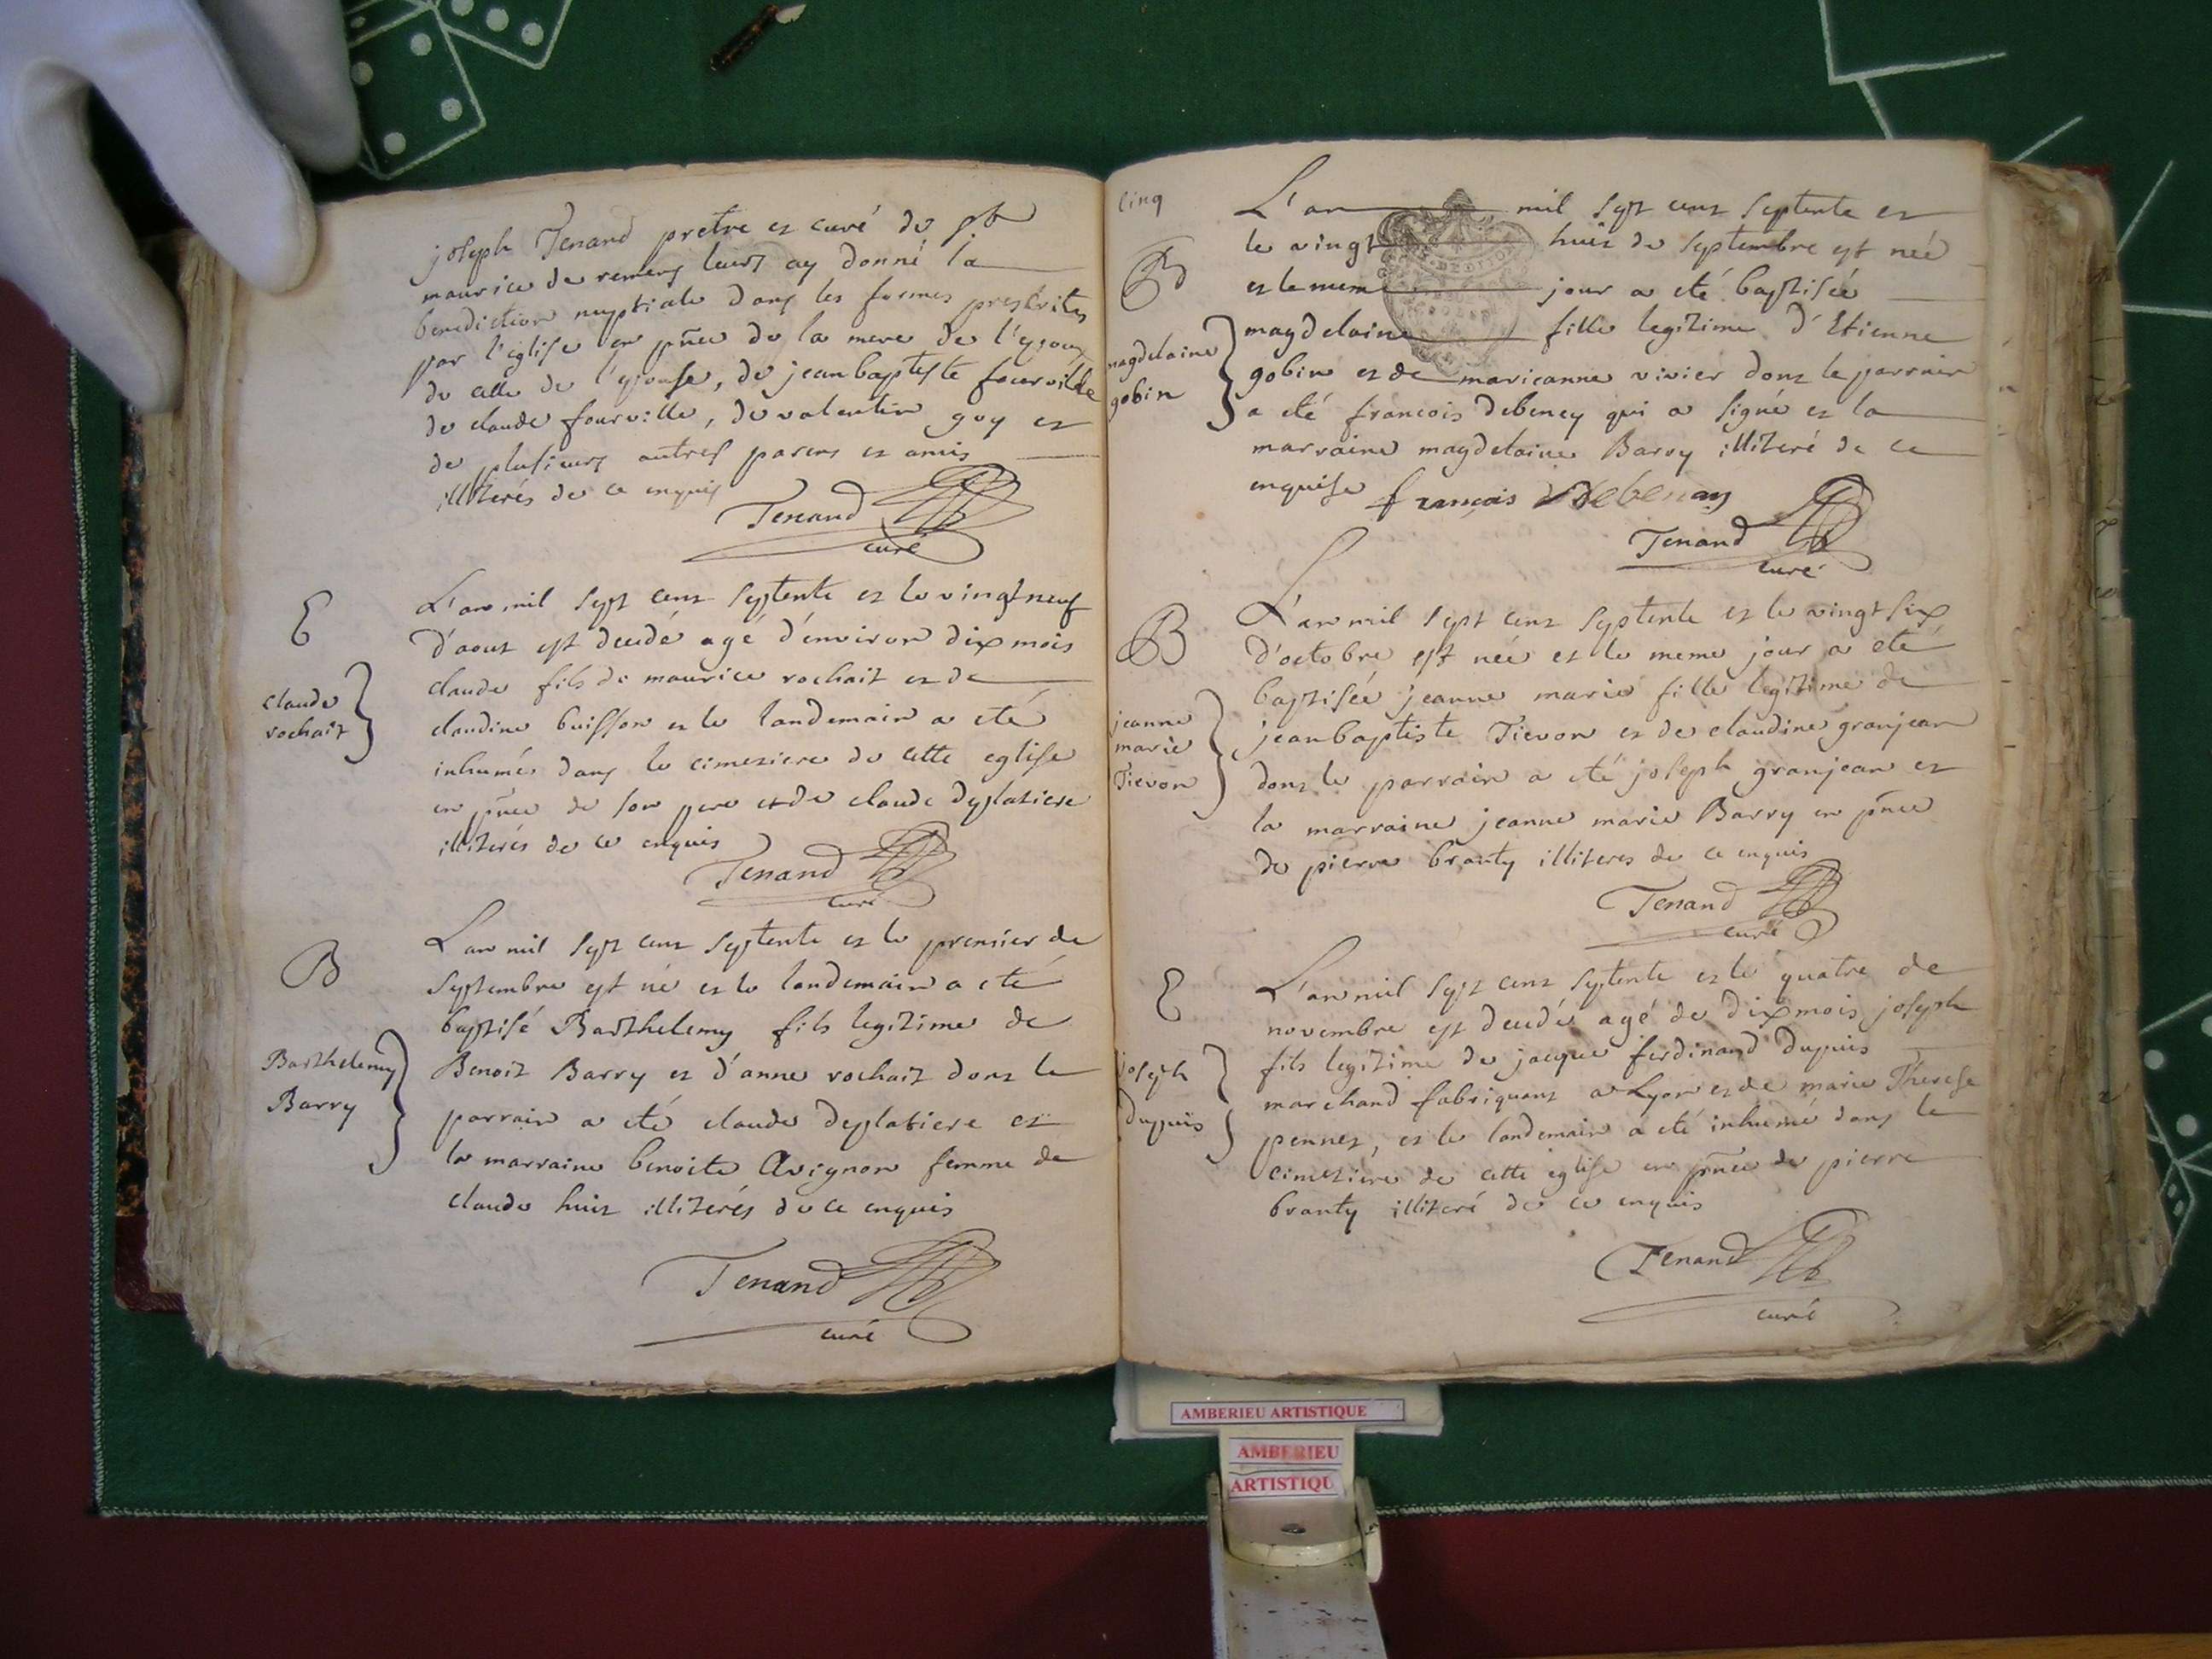 joseph Tenand pretre et curé de st
maurice de remens leurs ay donné la
benediction nuptiale dans les formes prescrites
par l'eglise en pñce de la mere de l'epoux
de celle de l'epouse, de jean baptiste fourville
de claude fourville, de valentin goy et
de plusieurs autres parens et amis
illiterés de ce enquis
Tenand
curé
E
claude
rochait
L'an mil sept cent septente et le vingt neuf
d'aout est decedé agé d'environ dix mois
claude fils de maurice rochait et de
claudine buisson et le landemain a eté
inhumé dans le cimetiere de cette eglise
en pñce de son pere et de claude deplatiere
illiterés de ce enquis
Tenand
curé
B
Barthelemy
Barry
L'an mil sept cent septente et le premier de
septembre est né et le landemain a eté
baptisé Barthelemy fils legitime de
Benoit Barry et d'anne rochait dont le
parrain a eté claude deplatiere et
la marraine benoite Avignon femme de
claude huit illiterés de ce enquis
Tenand
curé
cinq
B
magdelaine
gobin
L'an mil sept cent septente et
le vingt huit de septembre est née
et le meme jour a eté baptisée
magdelaine fille legitime d'Etienne
gobin et de marieanne vivier dont le parrain
a eté francois debeney qui a signé et la
marraine magdelaine Barry illiteré de ce
enquise françois debenay
Tenand
curé
B
jeanne
marie
Tievon
L'an mil sept cent septente et le vingt six
d'octobre est née et le meme jour a eté
baptisée jeanne marie fille legitime de
jean baptiste Tievon et de claudine granjean
dont le parrain a eté joseph granjean et
la marraine jeanne marie Barry en pñce
de pierre branty illiteres de ce enquis
Tenand
curé
E
joseph
dupuis
L'an mil sept cent septente et le quatre de
novembre est decedé agé de dix mois joseph
fils legitime de jacque ferdinand dupuis
marchand fabriquant a Lyon et de marie Therese
pennet, et le landemain a eté inhumé dans le
cimetiere de cette eglise en pñce de pierre
branty illiteré de ce enquis
Tenand
curé
AMBERIEU ARTISTIQUE
AMBERIEU
ARTISTIQU